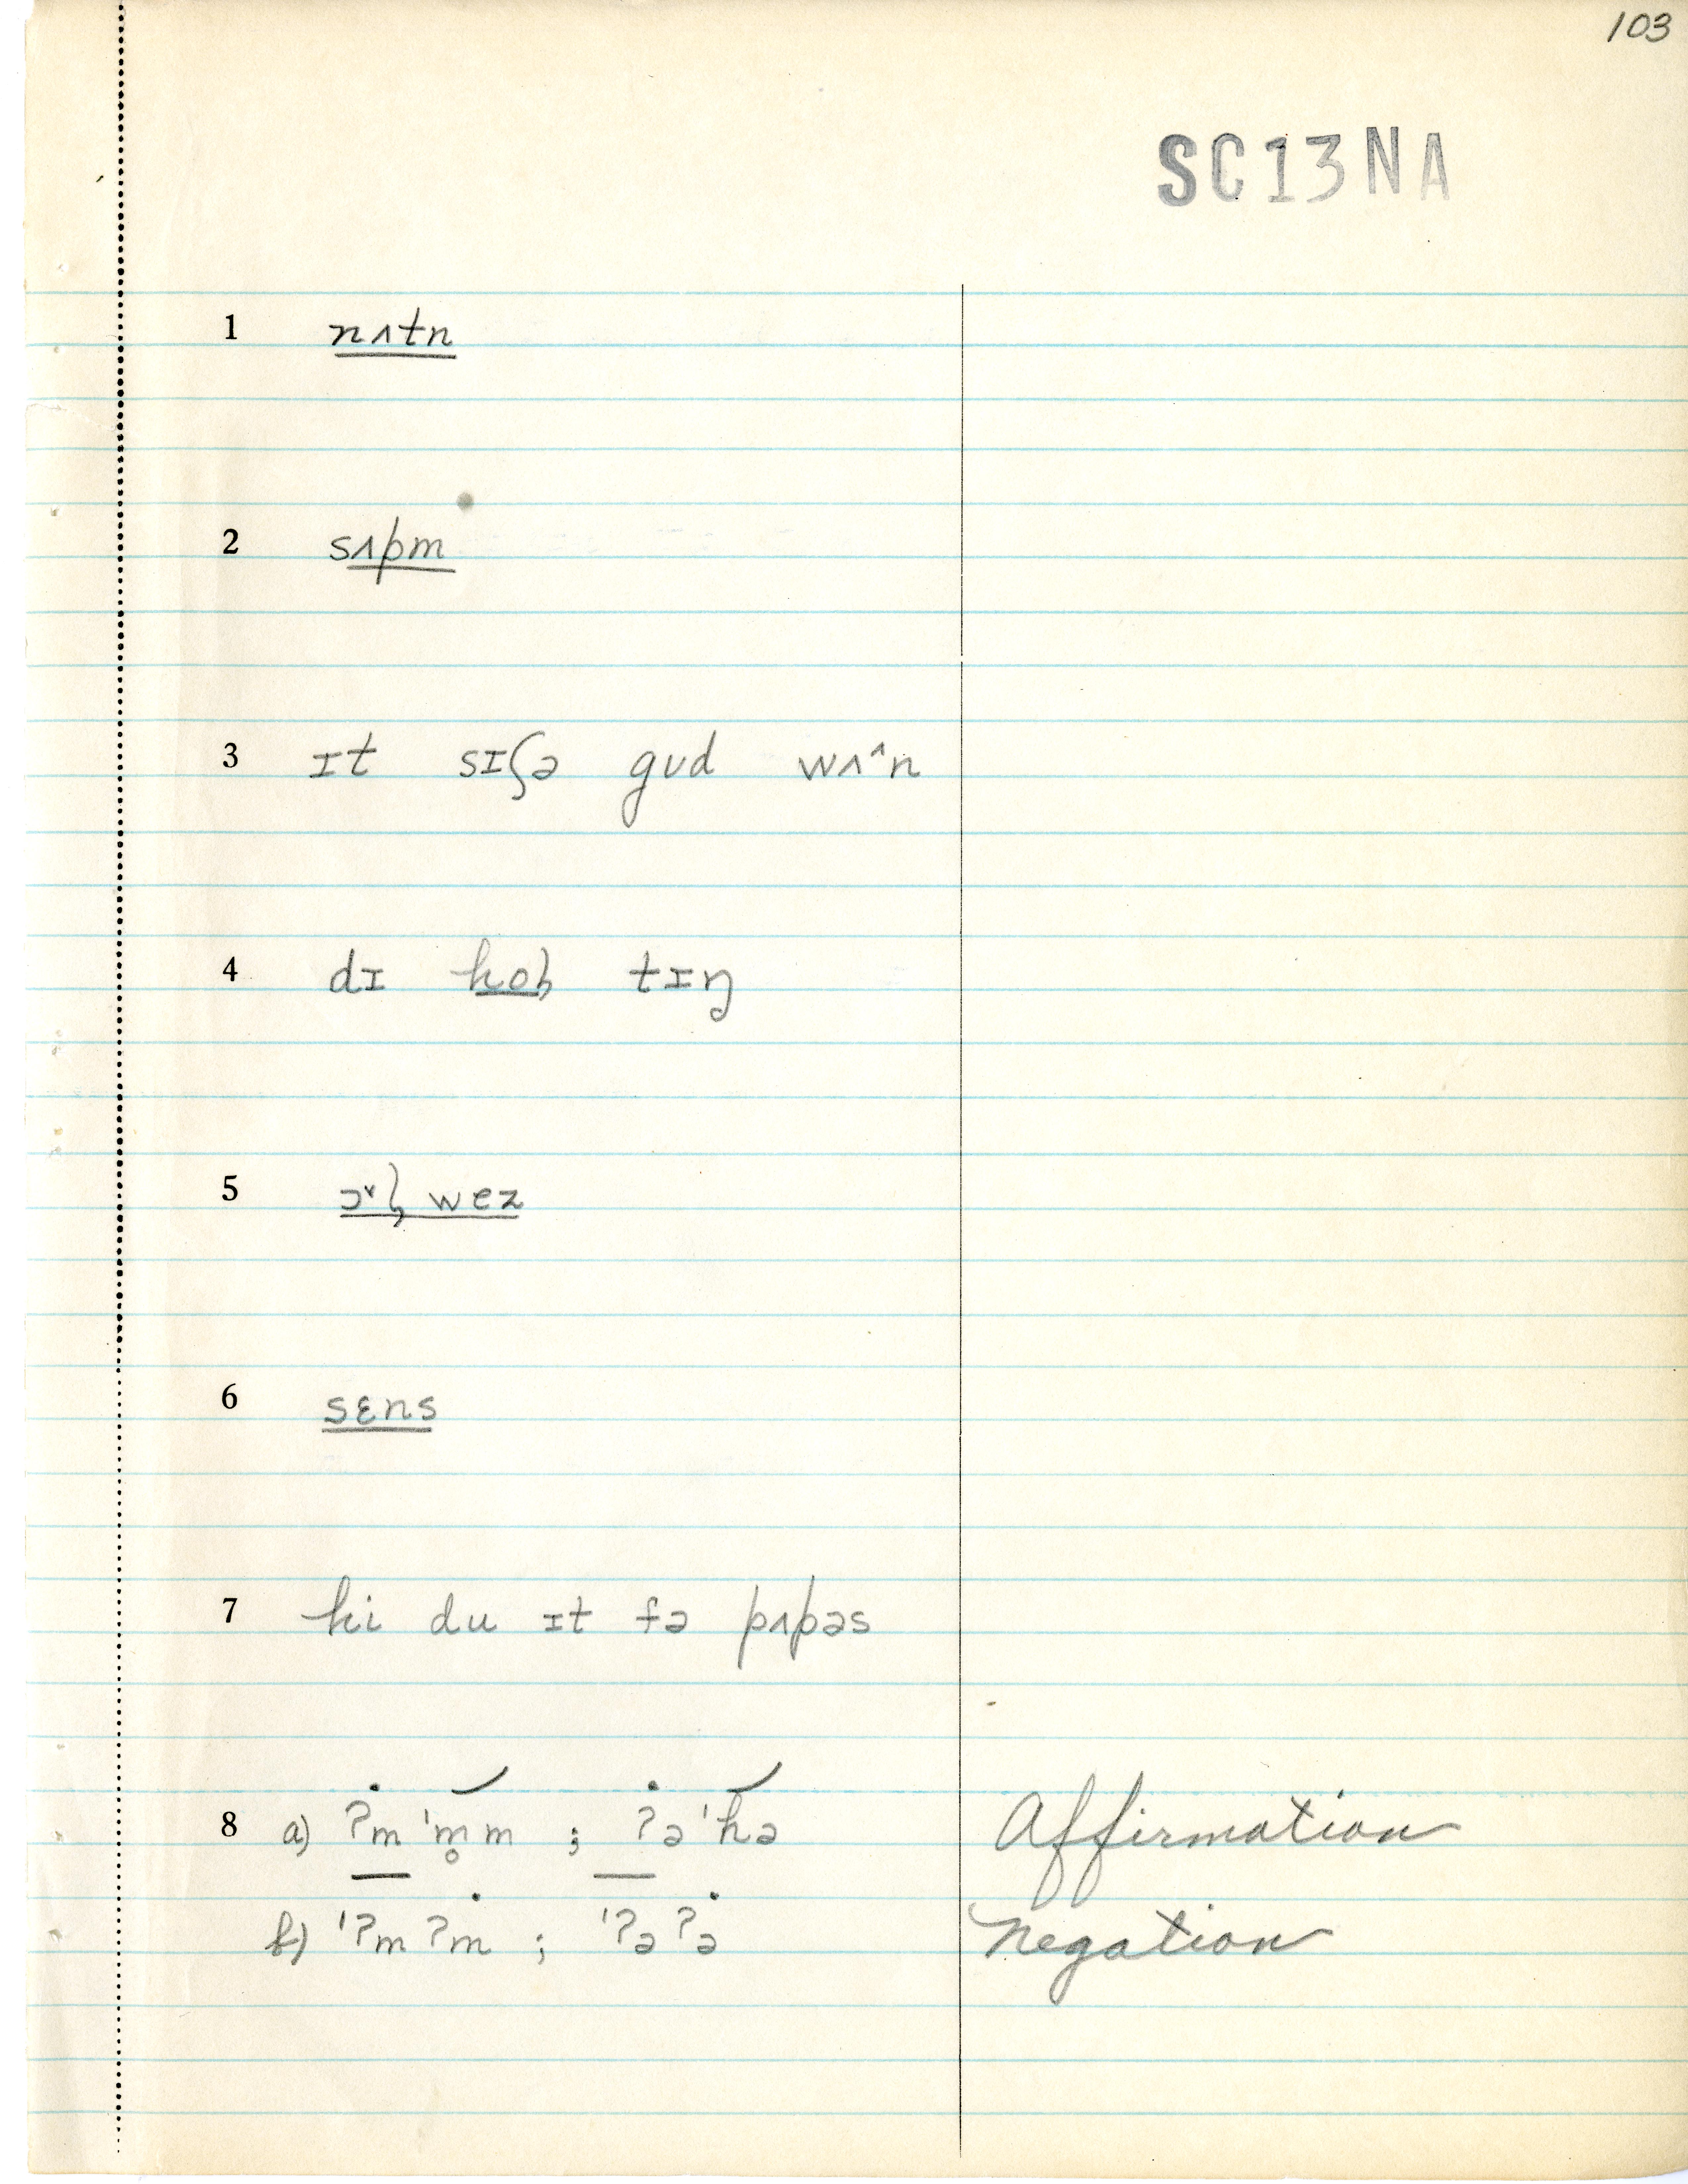 103
SC13NA
1 nʌtn
2 sʌpm
3 ɪt sɪʃə gʊd wʌ^n
4 dɪ hol̡ tɪŋ
5 ɔ˅l̡ wez
6 sɛns
7 hi du ɪt fə pʌpəs
8 a) ʔm'm̥m ; ʔə'hə Affirmation
b) 'ʔmʔm ; 'ʔəʔə Negation